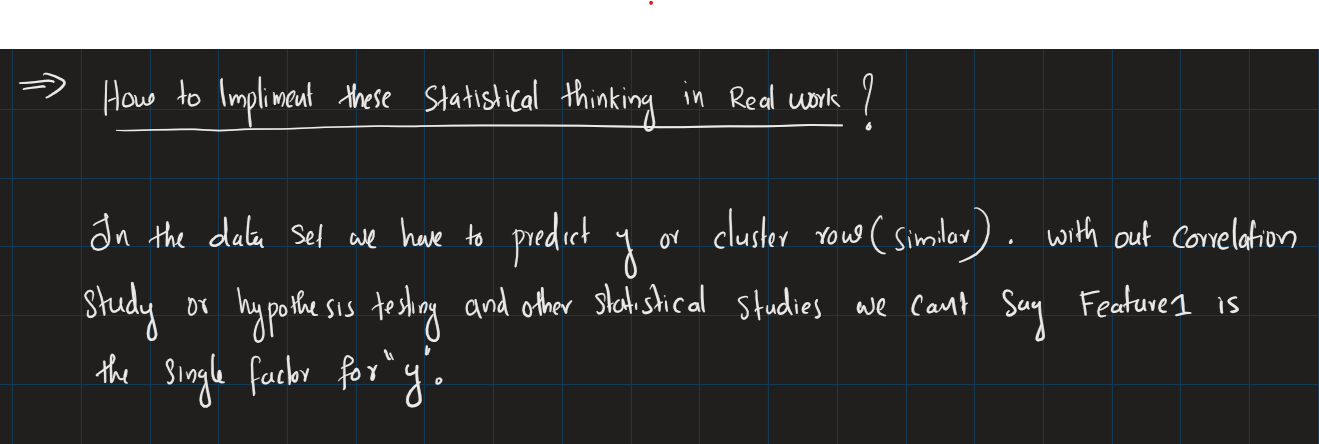 ⇒ How to Impliment these Statistical thinking in Real work ?
In the data set we have to predict y or cluster rows (similar). with out Correlation
Study or hypothesis testing and other statistical studies we can't say Feature1 is
the single factor for "y".